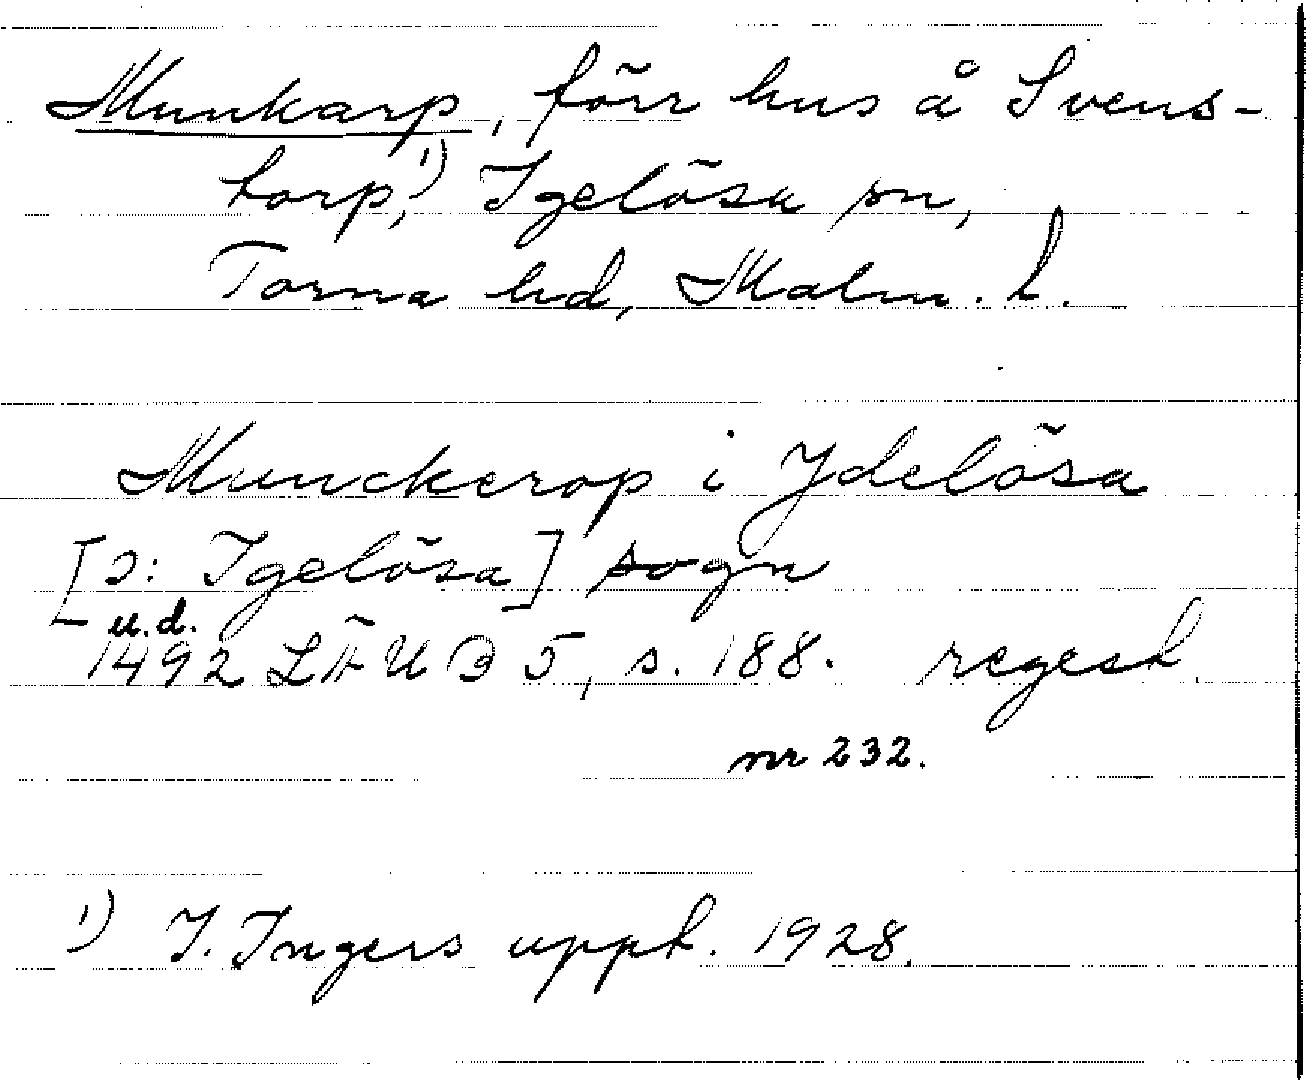 Munkarp, förr hus å Svens-
torp,¹) Igelösa sn,
Torna hd, Malm. L.
Munckerop i Ydelösa
[ɔ: Igelösa] sogn
u.d.
1492 LÄUB 5, s. 188. regest
nr 232.
¹) I. Ingers uppt. 1928.